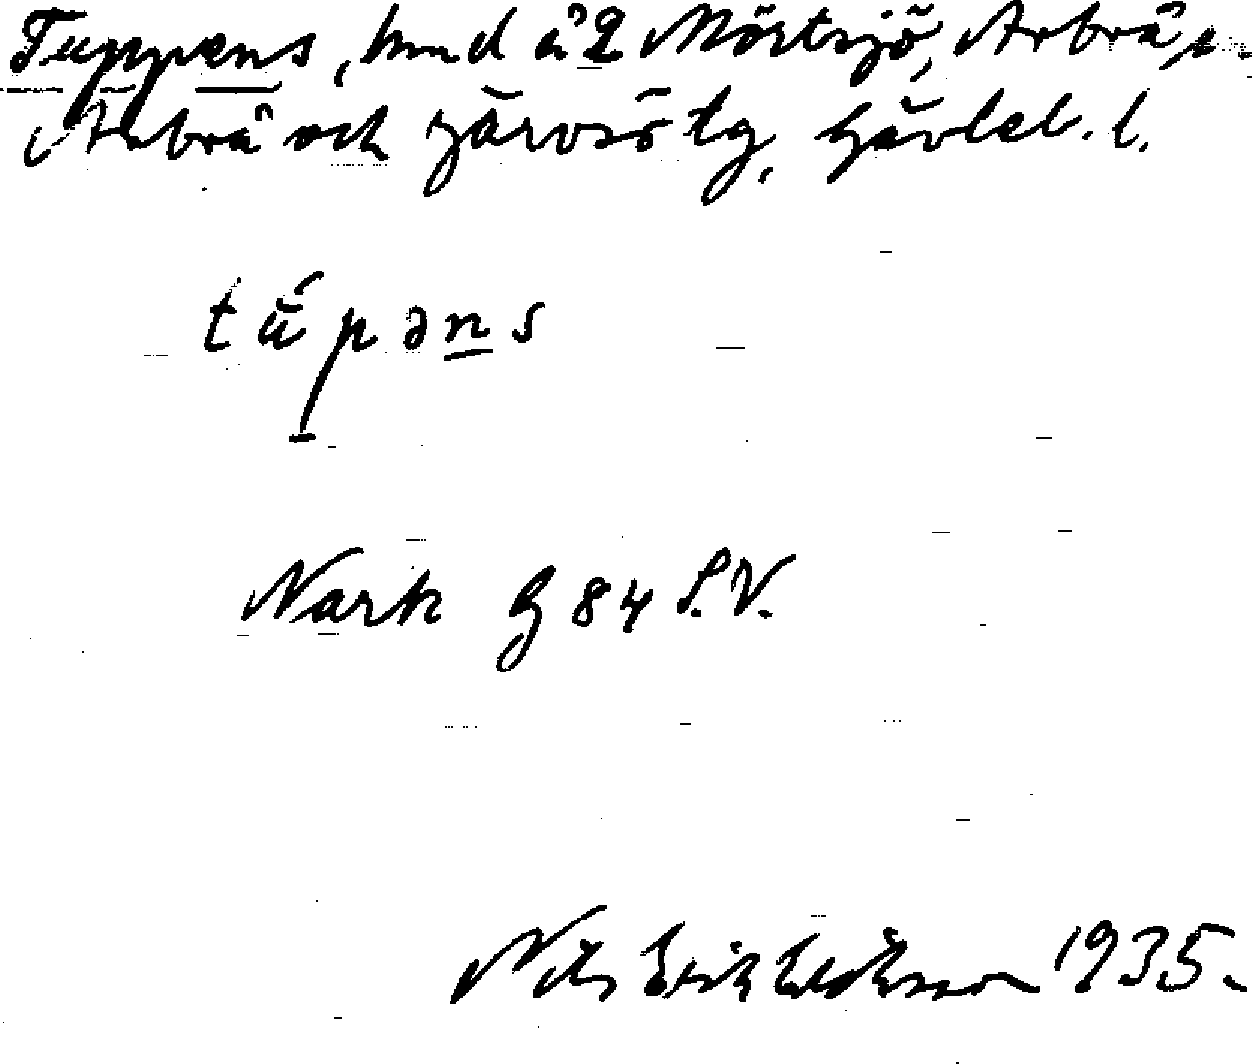 Tuppens, hmd å 2 Mörtsjö, Arbrå s.
Arbrå och Järvsö tg, Gävleb. l.
túpəns
Nark G 84 S.V.
Nils Erik 1935.